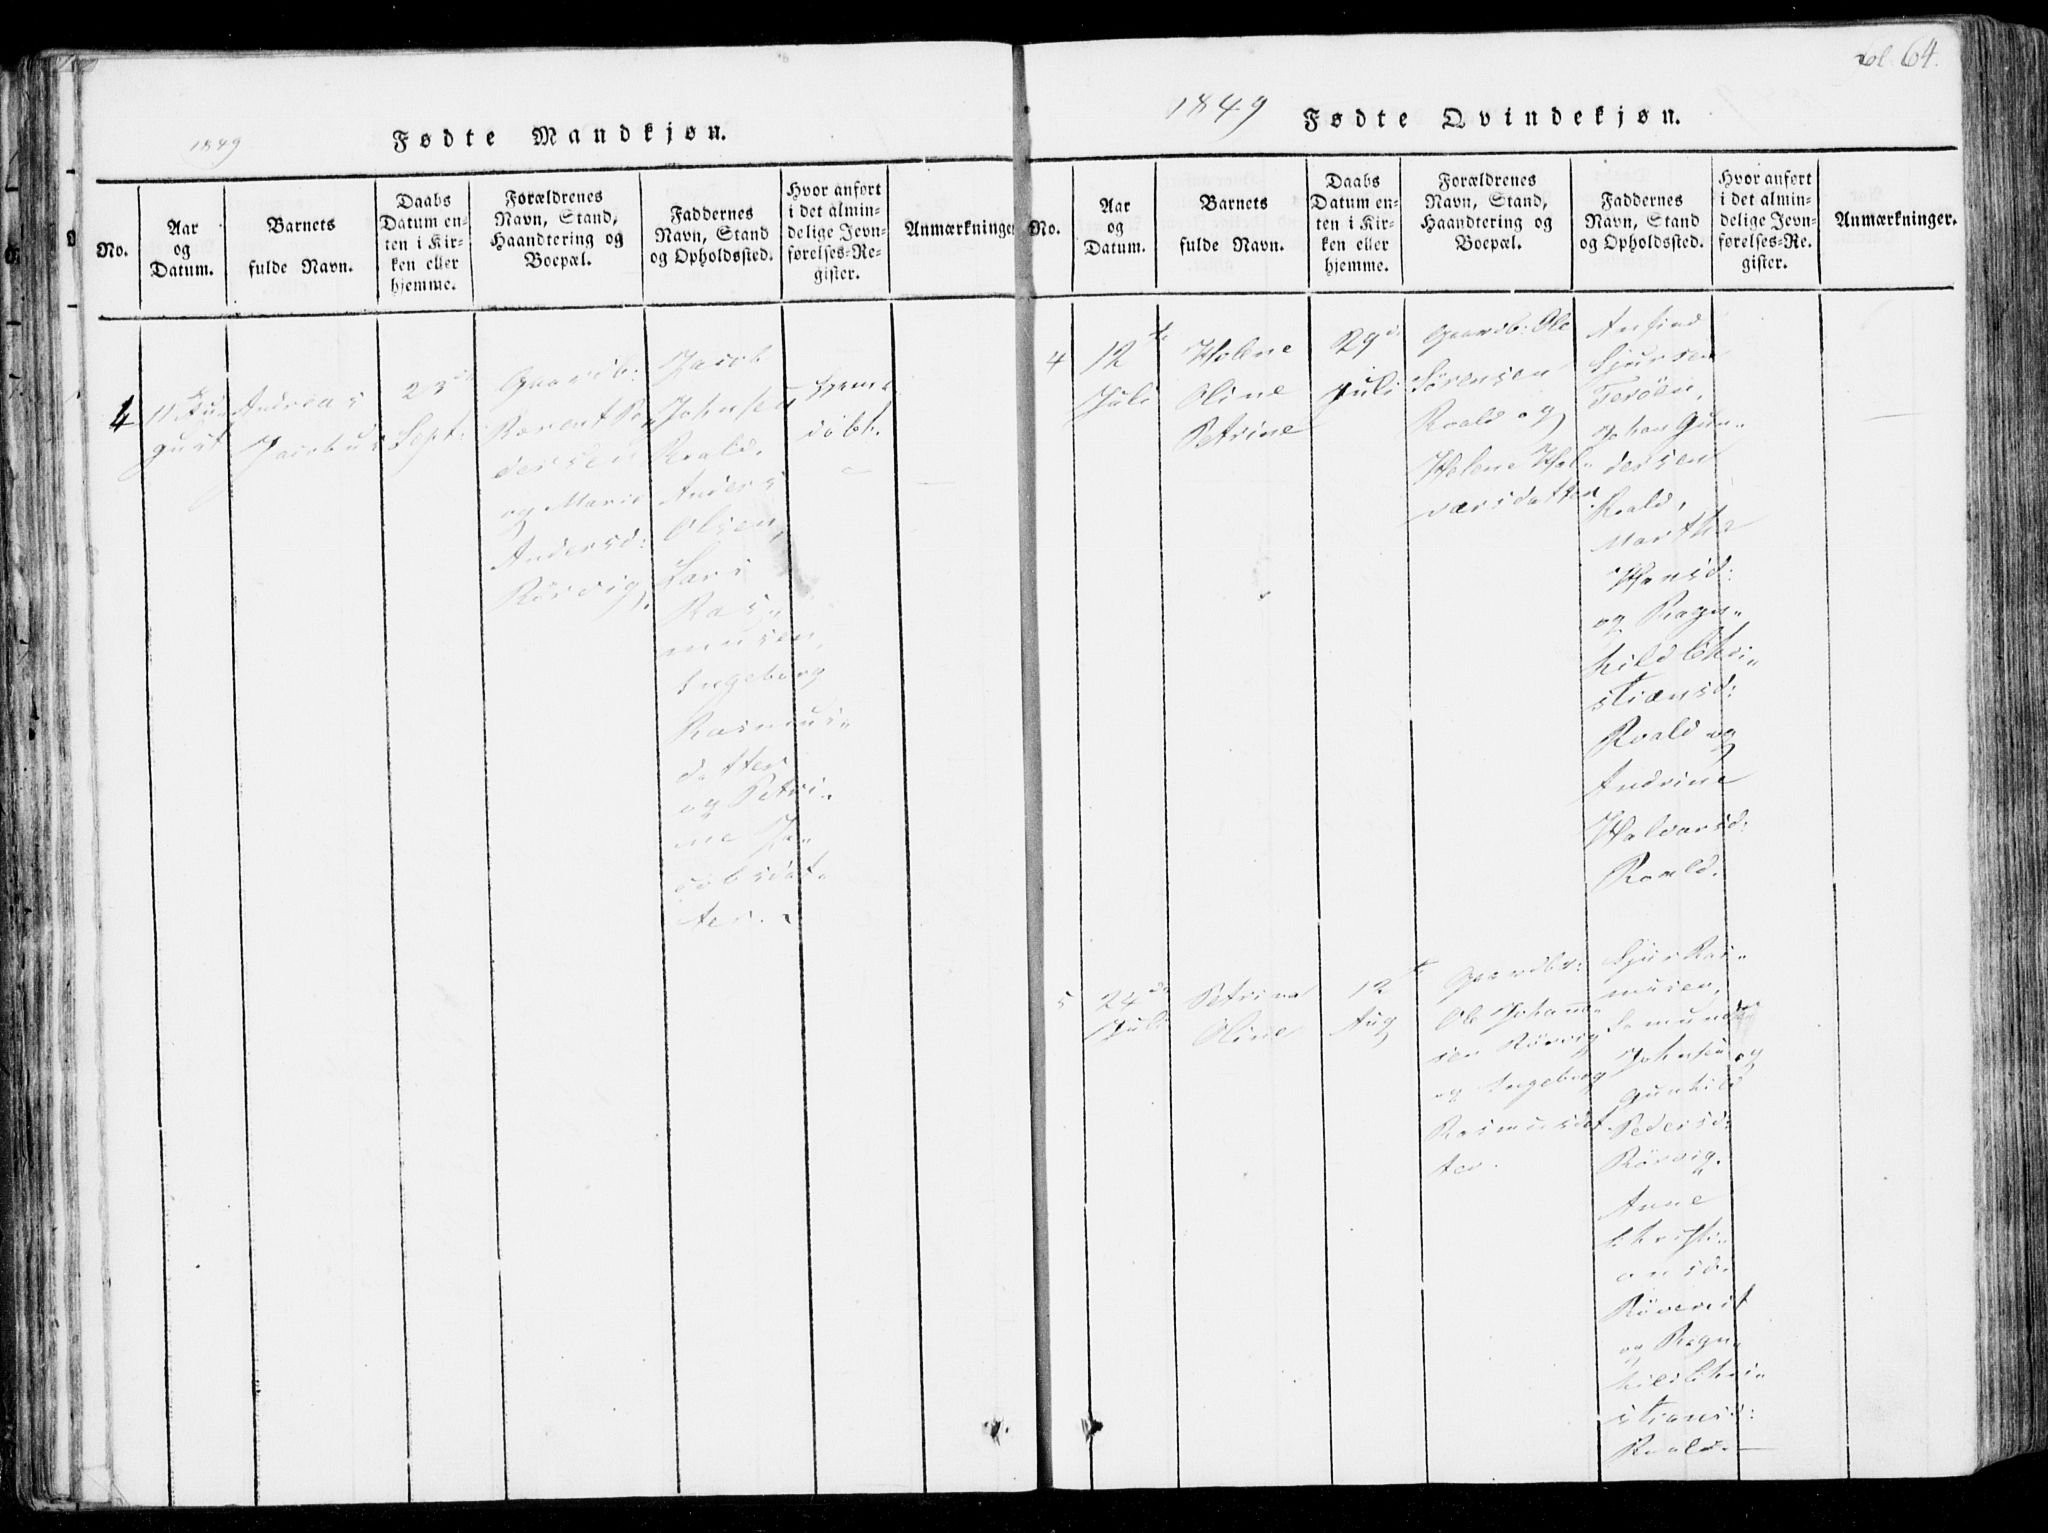 fol. 64.
1849
Fødte Mandkjøn.
No.
Aar
og
Datum.
Barnets
fulde Navn.
Daabs
Datum en-
ten i Kir-
ken eller
hjemme.
Forældrenes
Navn, Stand,
Haandtering og
Boepæl.
Faddernes
Navn, Stand
og Opholdssted.
Hvor anført
i det almin-
delige Jevn-
førelses-Re-
gister.
Anmærkninge
4
11te Au-
gust
Andreas
Jacobus
23de
Sept.
Gaardb:
Berent Pe-
dersen
og Marie
Andersd:
Rörvig.
Jacob
Johnsen
Roald,
Anders
Olsen,
Lars
Ras-
musen,
Ingeborg
Rasmus-
datter
og Petri-
ne Ja-
cobsdat-
ter.
hjemme
døbt.
1849
Fødte Qvindekjøn.
No.
Aar
og
Datum.
Barnets
fulde Navn.
Daabs
Datum en-
ten i Kir-
ken eller
hjemme.
Forældrenes
Navn, Stand,
Haandtering og
Boepæl.
Faddernes
Navn, Stand
og Opholdssted.
Hvor anført
i det almin-
delige Jevn-
førelses-Re-
gister.
Anmærkninger.
4
12te
Juli
Helene
Oline
Petrine
29de
Juli
Gaardb: Ole
Sörensen
Roald og
Helene Hal-
varsdatter
Sjursen
Johan Gun-
dersen
Roald,
Marthe
Hansd:
og Ragn-
hild Chri-
stiansd:
Roald og
Andrine
Halvarsd:
Roald.
5
24de
Juli
Petrine
Oline
12te
Aug
Gaardbr:
Ole Johan-
sen Rörvig
og Ingeborg
Rasmusdat
ter.
Sjur Ras-
musen,
Johnsen og
Gunhild
Pedersd:
Rörvig.
Anne
Christi-
ansd.
og Ragn-
hild Chri-
stiansd:
Roald.